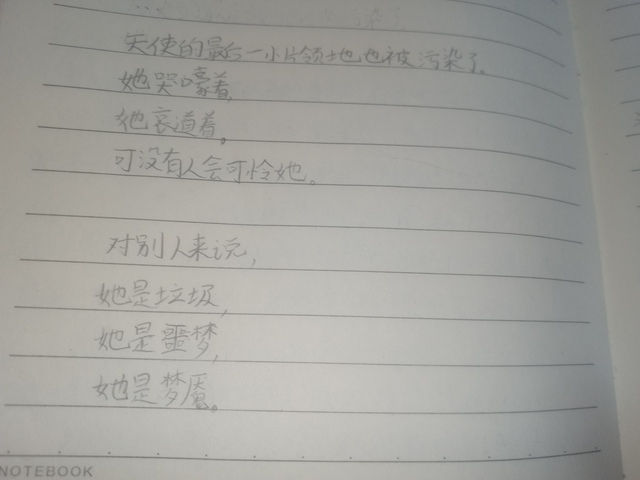 天使的最后一小片领地也被污染了。
她哭嚎着,
她哀道着。
可没有人会可怜她。
对别人来说,
她是垃圾,
她是噩梦,
她是梦魇。
NOTEBOOK